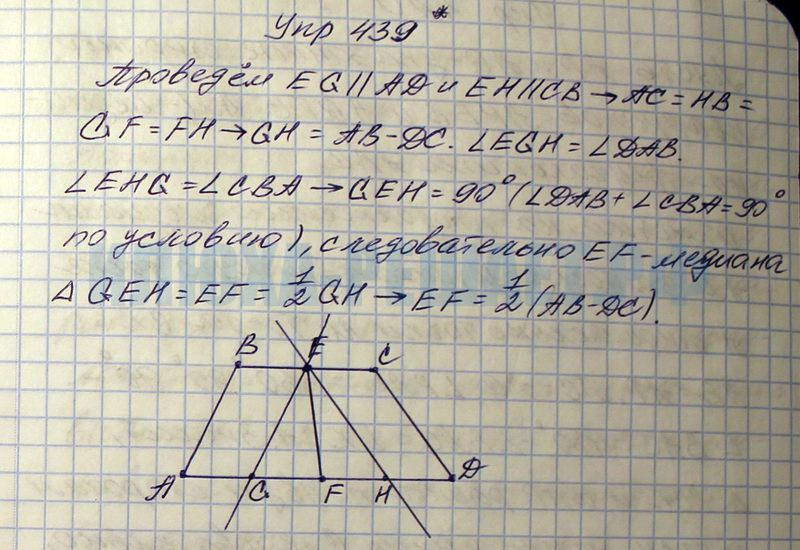 Упр 439*
Проведём EG||AD и EH||CB → AC = HB =
GF = FH → GH = AB-DC. ∠EGH = ∠DAB.
∠EHG = ∠CBA → GEH = 90° (∠DAB + ∠CBA = 90°
по условию), следовательно EF - медиана
△ GEH = EF = 1/2 GH → EF = 1/2 (AB-DC).
B E C
A G F H D